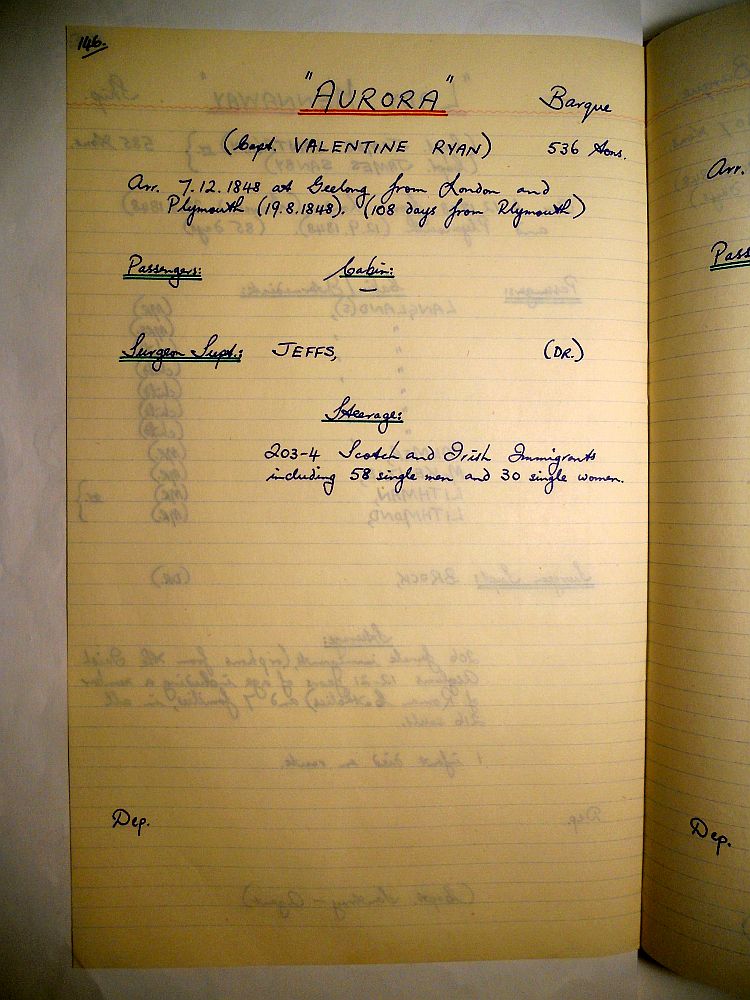 146.
"AURORA" Barque
(Capt. VALENTINE RYAN) 536 tons.
Arr. 7.12.1848 at Geelong from London and
Plymouth (19.8.1848). (108 days from Plymouth)
Passengers: Cabin:
Surgeon Supt.: JEFFS, (DR.)
Steerage:
203-4 Scotch and Irish Immigrants
including 58 single men and 30 single women.
Dep.
Arr.
Pass
Dep.